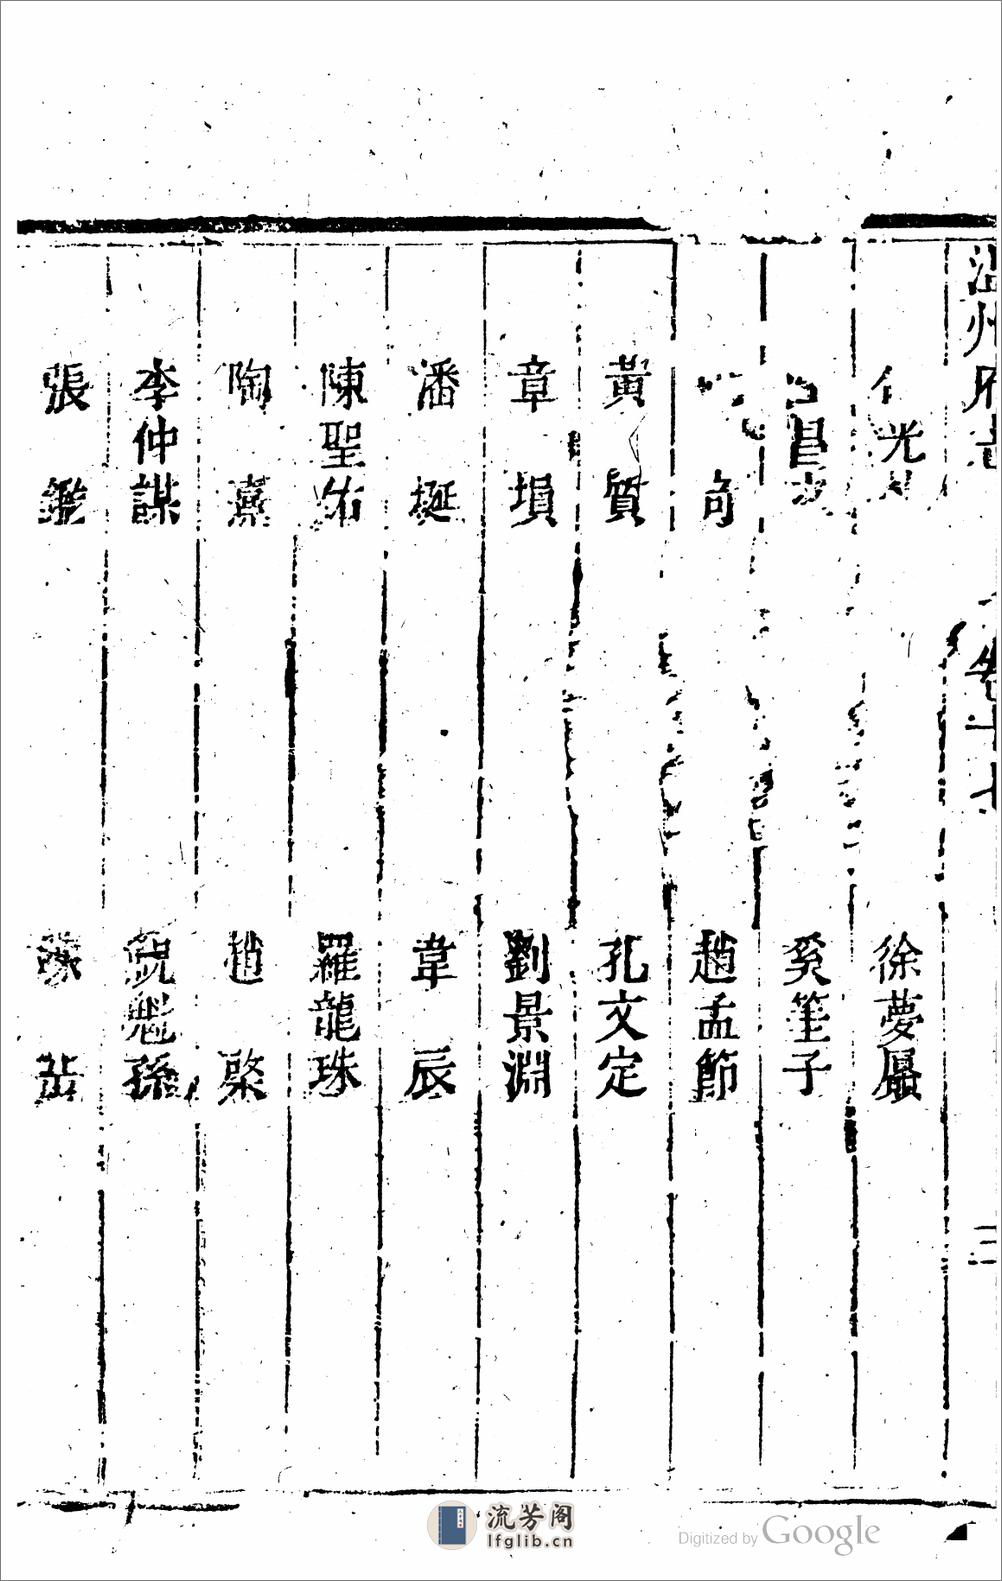 温州府志 卷十七 三
光 徐夢屭
昌 奚筆子
奇 趙孟節
黃質 孔文定
章埙 劉景淵
潘挻 韋辰
陳聖佑 羅龍珠
陶熹 趙棨
李仲謀 倪魁孫
張鑑
流芳阁
lfglib.cn
Digitized by Google